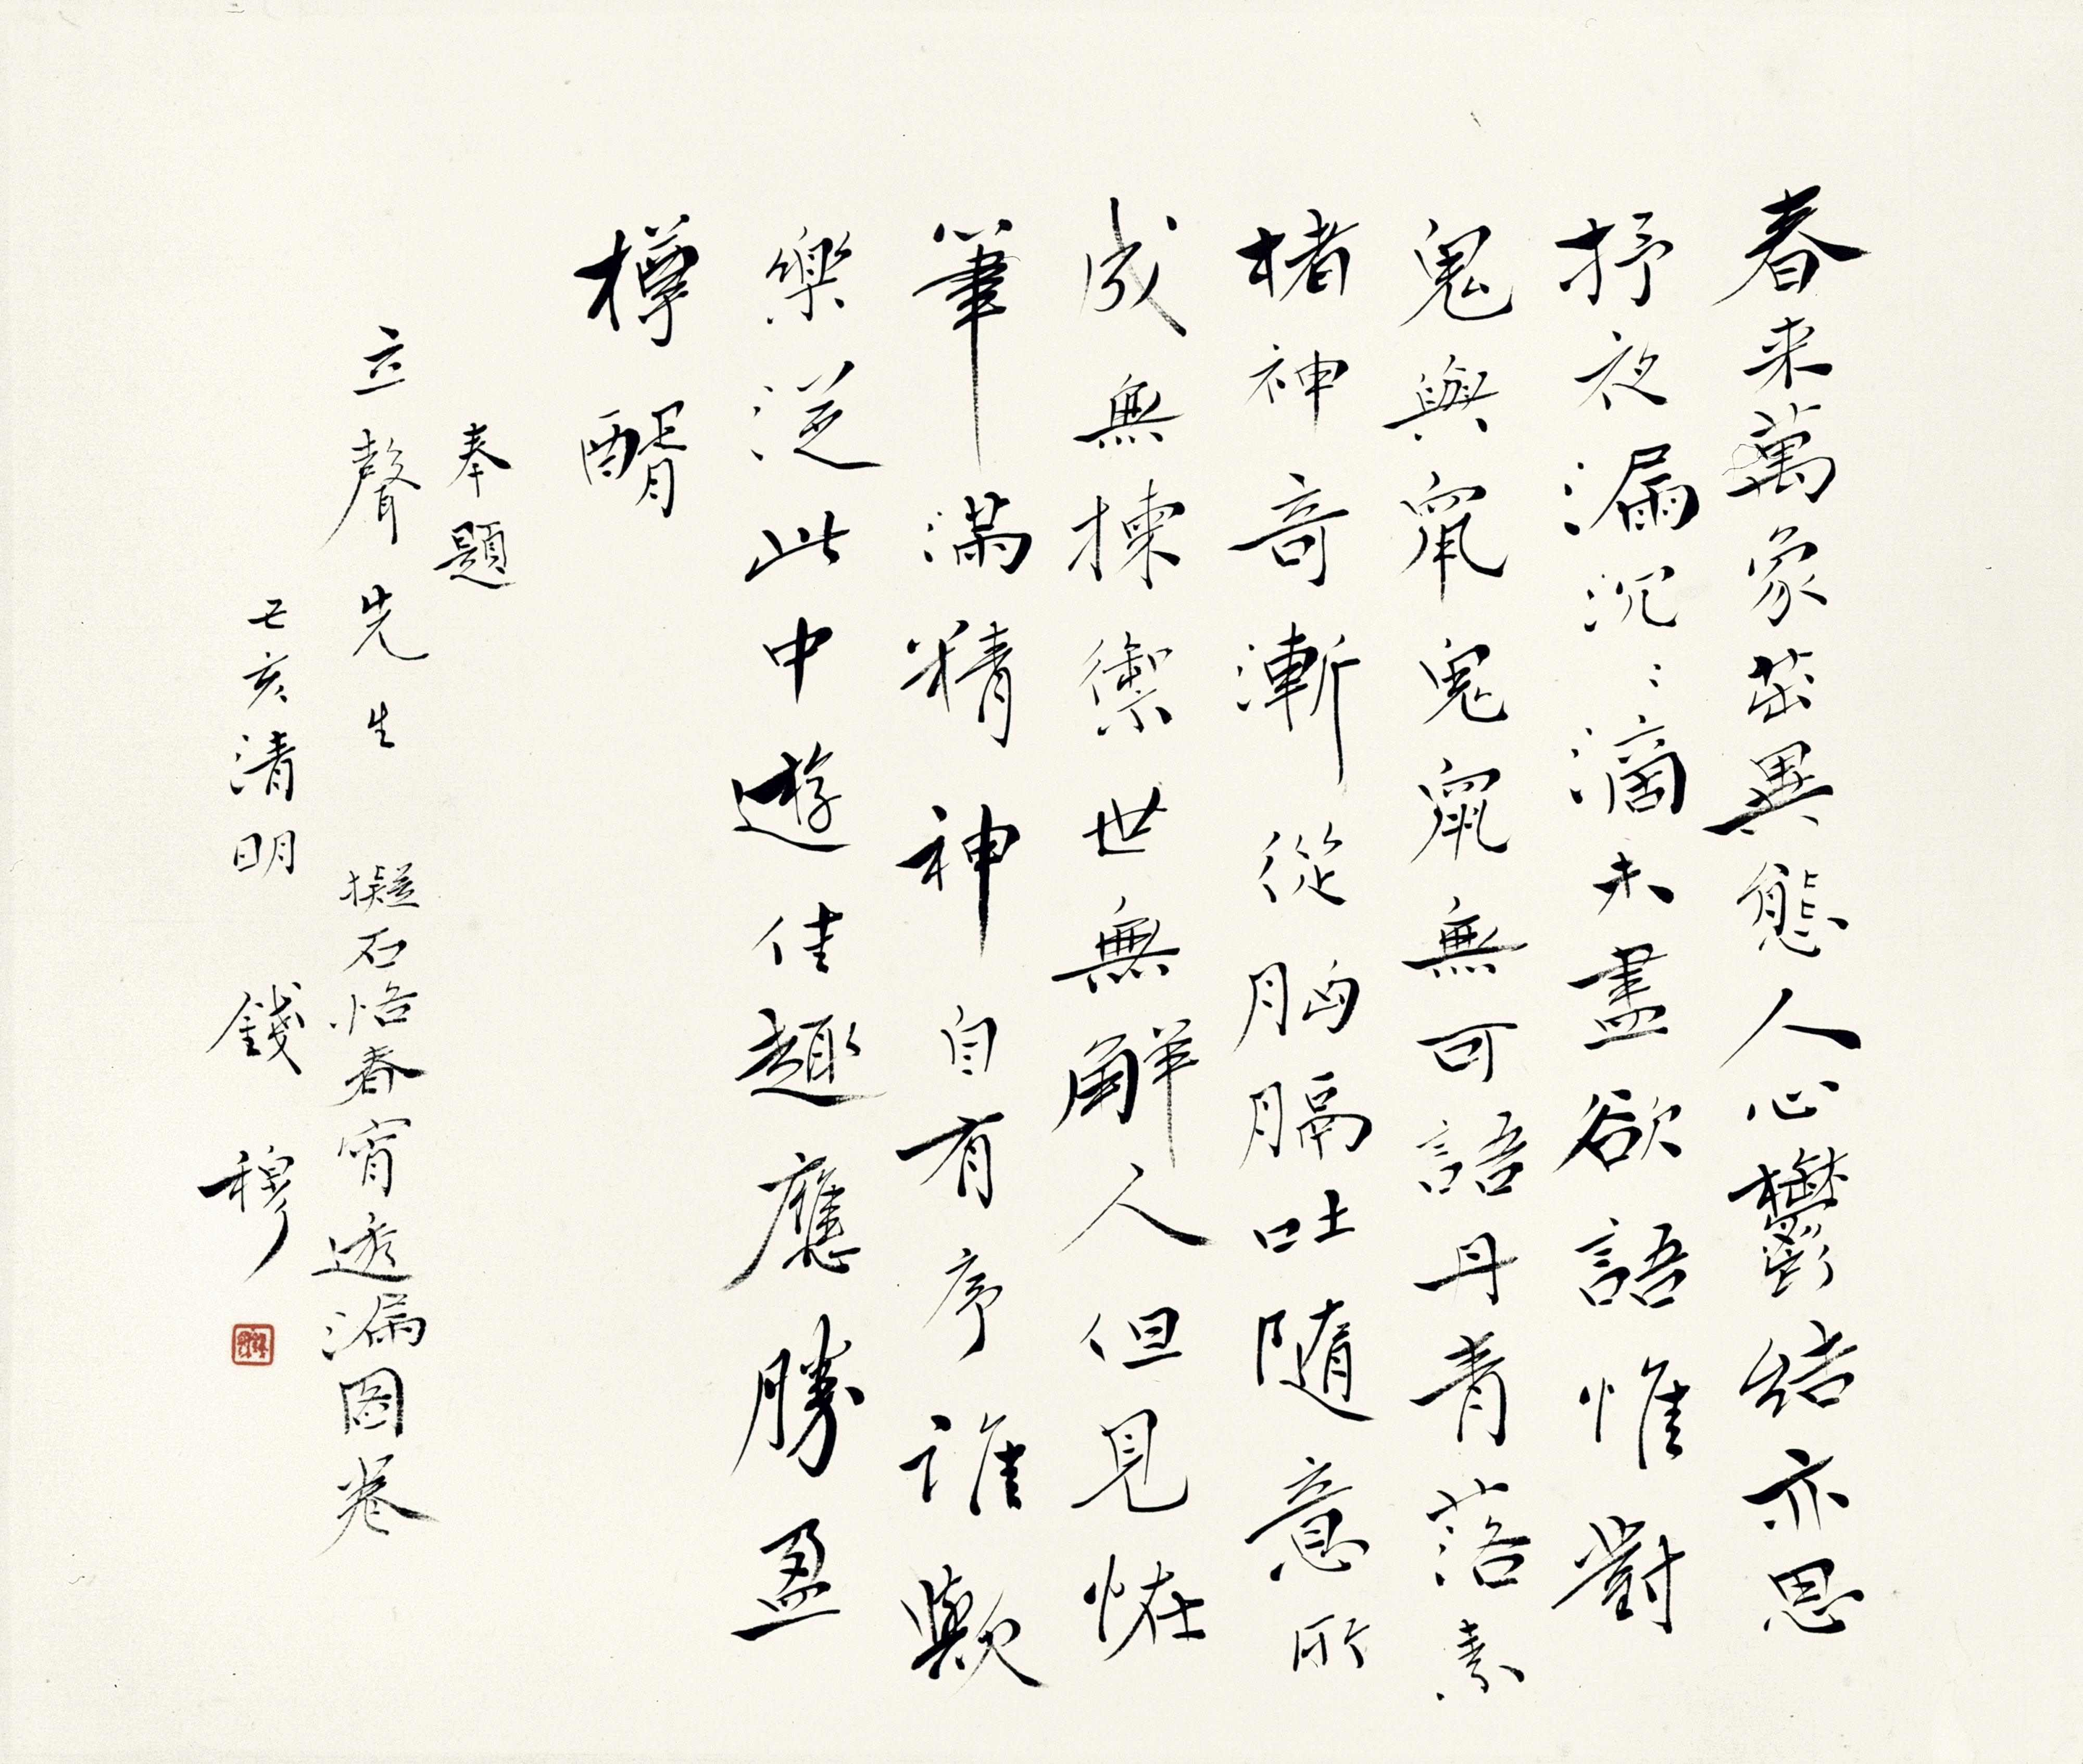 春来萬象茁異態人心鬱結亦思
抒夜漏沉〻滴未盡欲語惟對
鬼與鼠鬼鼠無可語丹青落素
楮神奇漸從胸膈吐隨意所
成無揀禦世無解人但見恠
筆滿精神自有序誰歟
樂逆此中遊佳趣應勝盈
樽醑
奉題
立聲先生 擬石恪春宵透漏圖卷
辛亥清明 錢穆